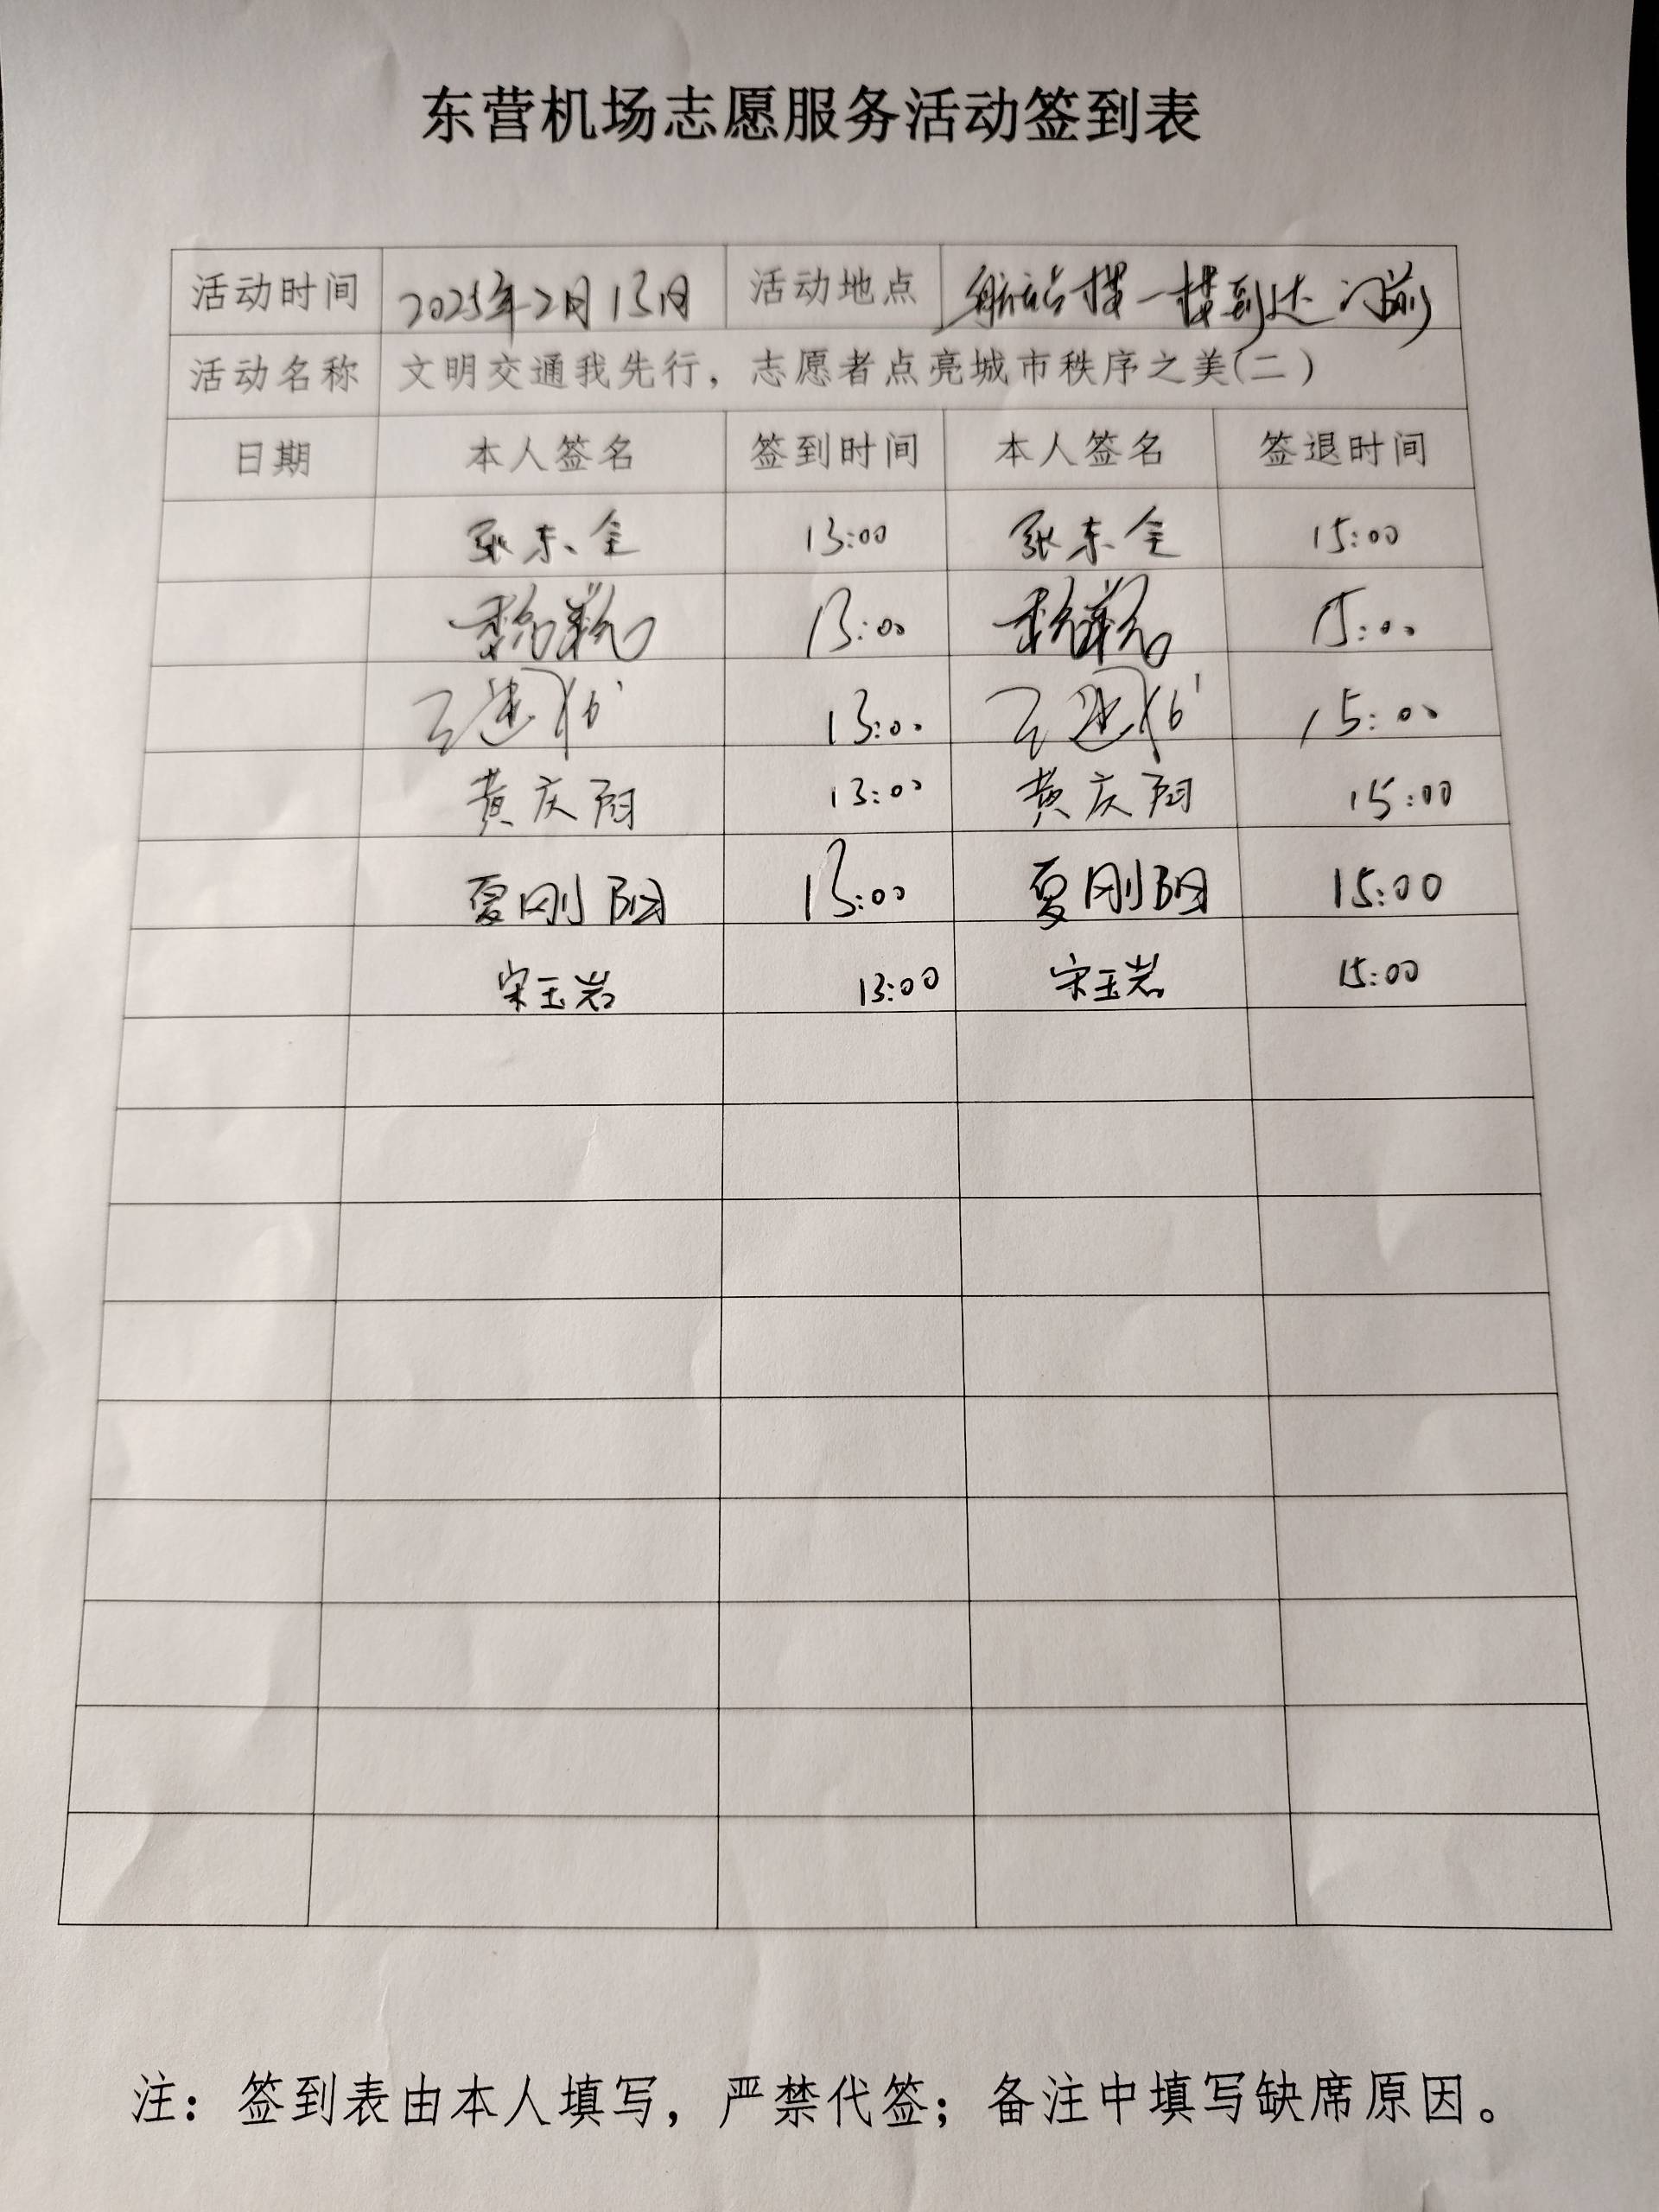 东营机场志愿服务活动签到表
活动时间 2025年2月13日 活动地点 航站楼一楼到达门前
活动名称 文明交通我先行，志愿者点亮城市秩序之美(二)
日期 本人签名 签到时间 本人签名 签退时间
张东全 13:00 张东全 15:00
13:00 15:00
13:00 15:00
黄庆阳 13:00 黄庆阳 15:00
夏刚阳 13:00 夏刚阳 15:00
宋玉岩 13:00 宋玉岩 15:00
注：签到表由本人填写，严禁代签；备注中填写缺席原因。